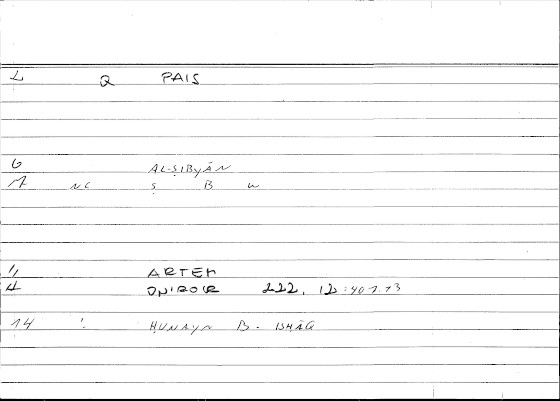 L Q PAIS
6 AL-ṢIBYĀN
1 NC Ṣ B W
11 ARTEM
4 ONIROCR 222, 12:407.13
14 : ḤUNAYN B. ISḤĀQ